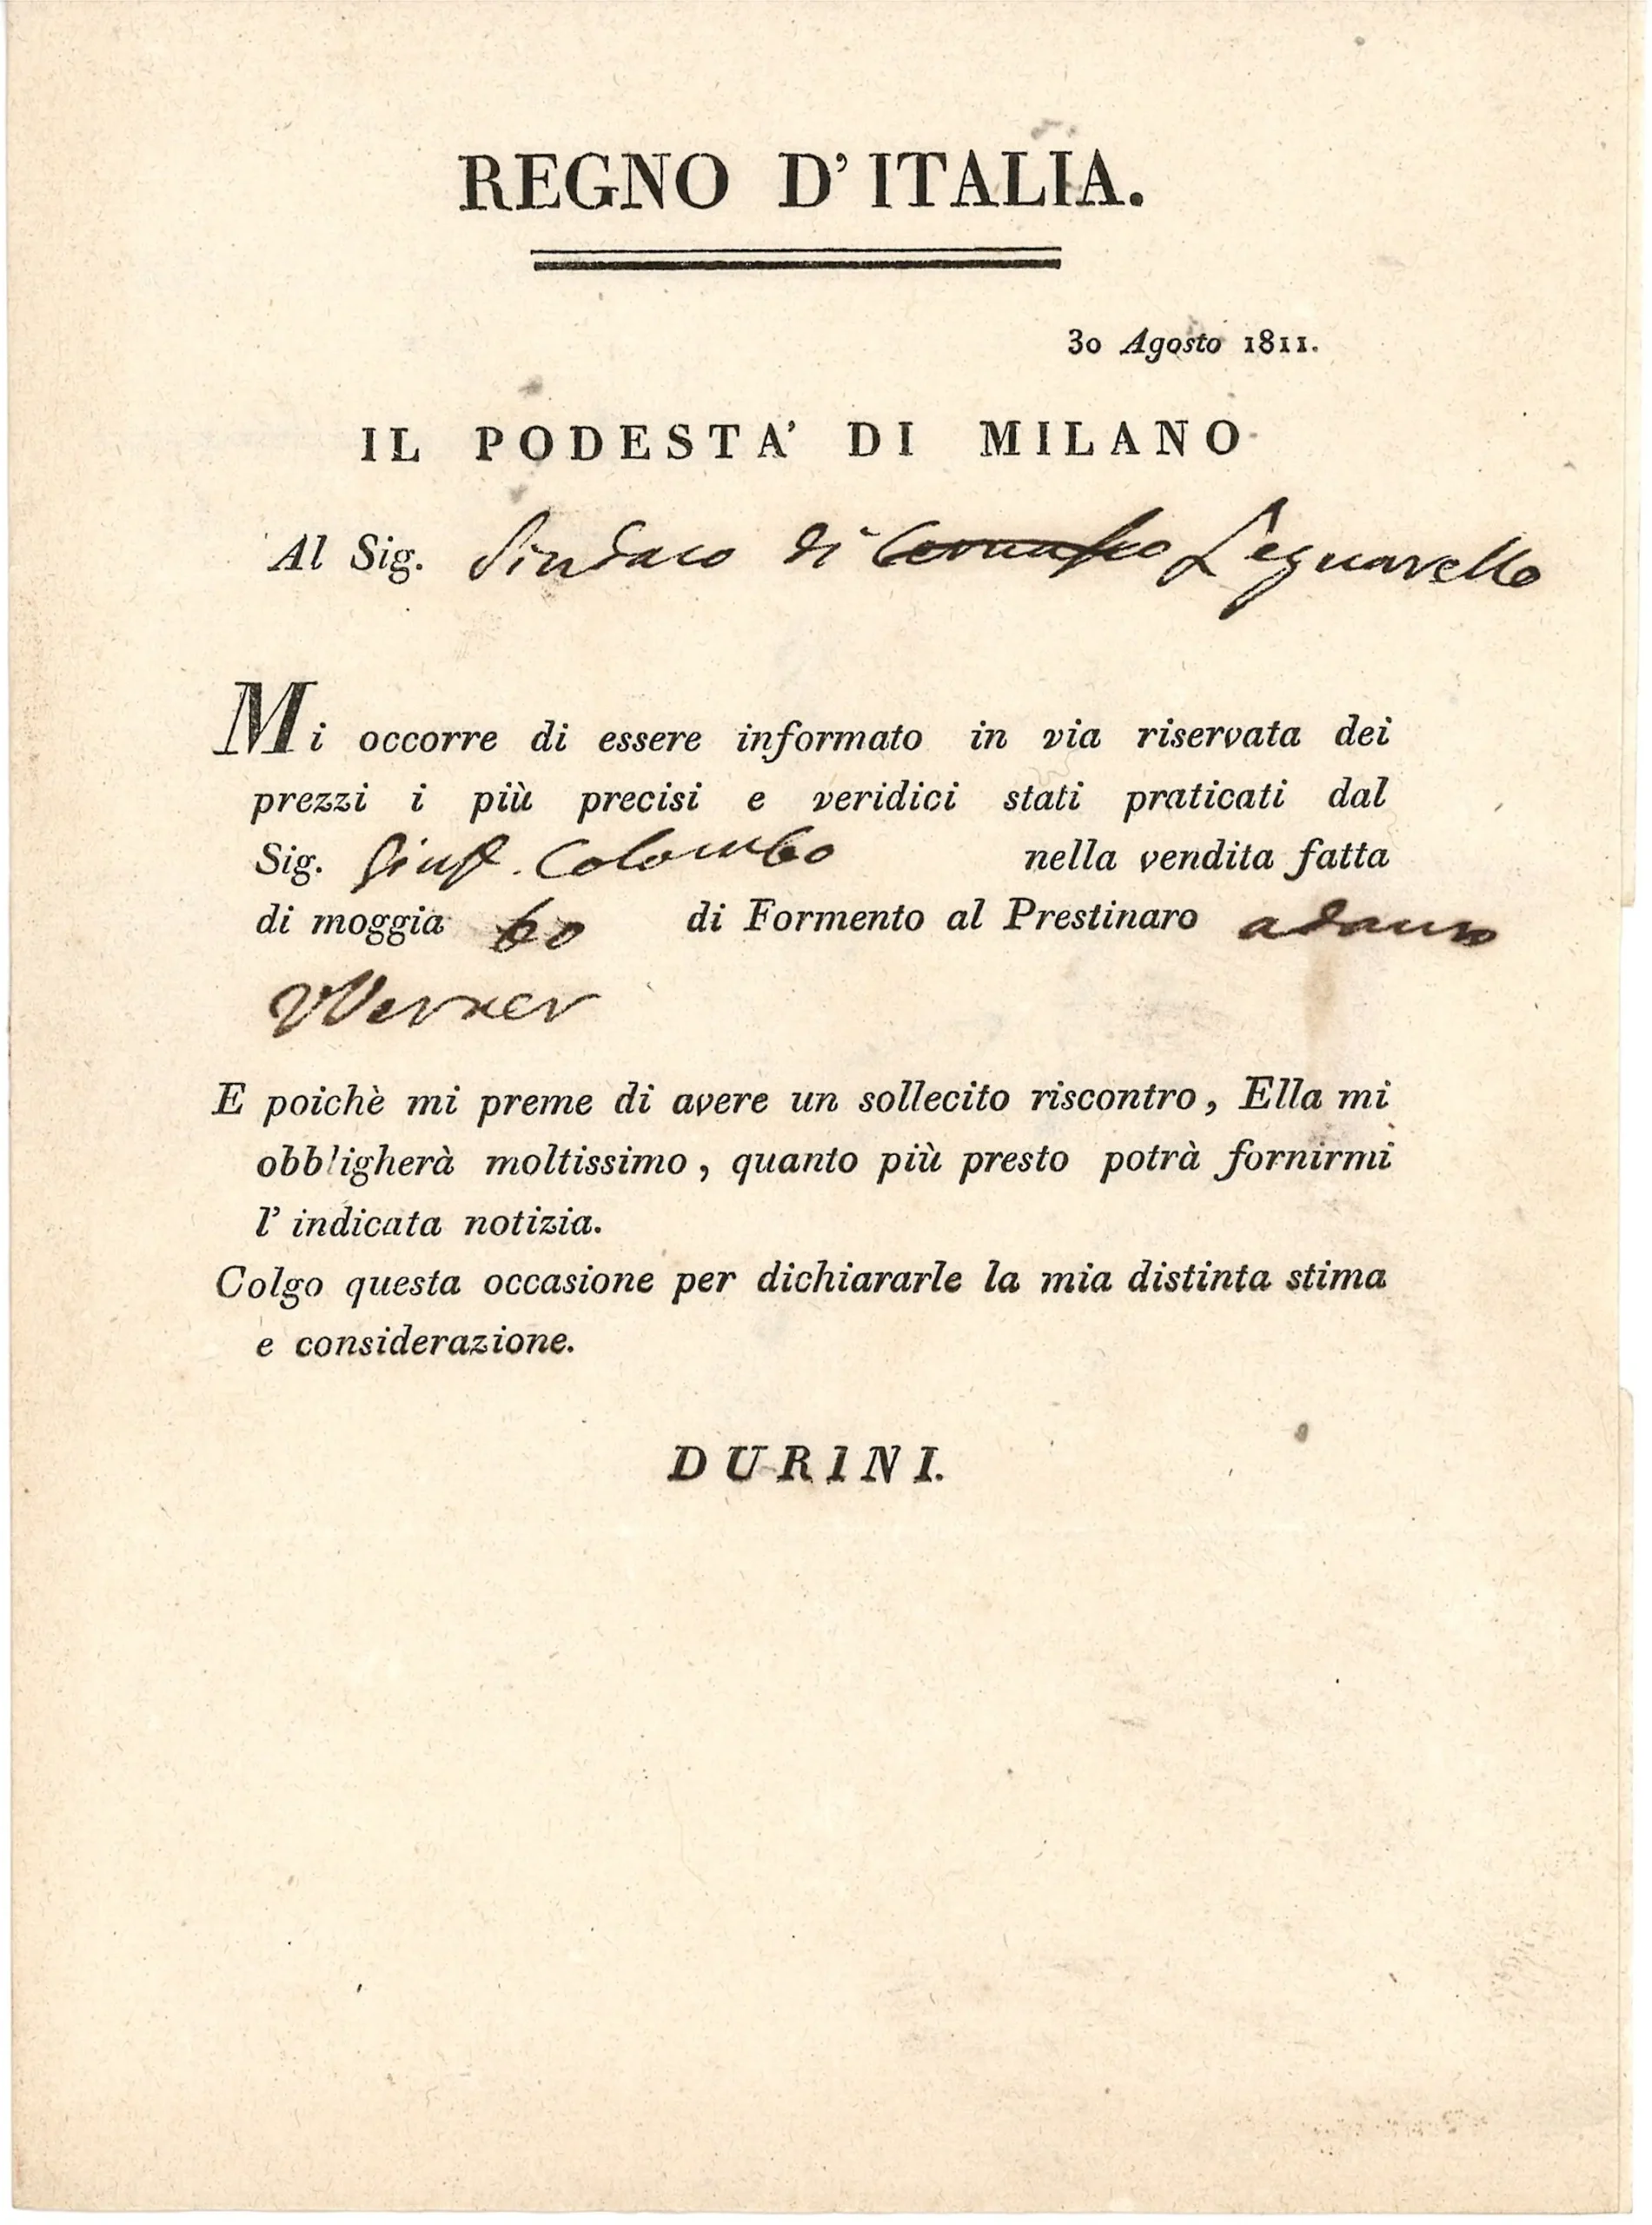 REGNO D'ITALIA.
30 Agosto 1811.
IL PODESTA' DI MILANO
Al Sig. Sindaco di Legnarello
Mi occorre di essere informato in via riservata dei
prezzi i più precisi e veridici stati praticati dal
Sig. Gius. Colombo nella vendita fatta
di moggia 60 di Formento al Prestinaro adamo
Werner
E poichè mi preme di avere un sollecito riscontro, Ella mi
obbligherà moltissimo, quanto più presto potrà fornirmi
l' indicata notizia.
Colgo questa occasione per dichiararle la mia distinta stima
e considerazione.
DURINI.